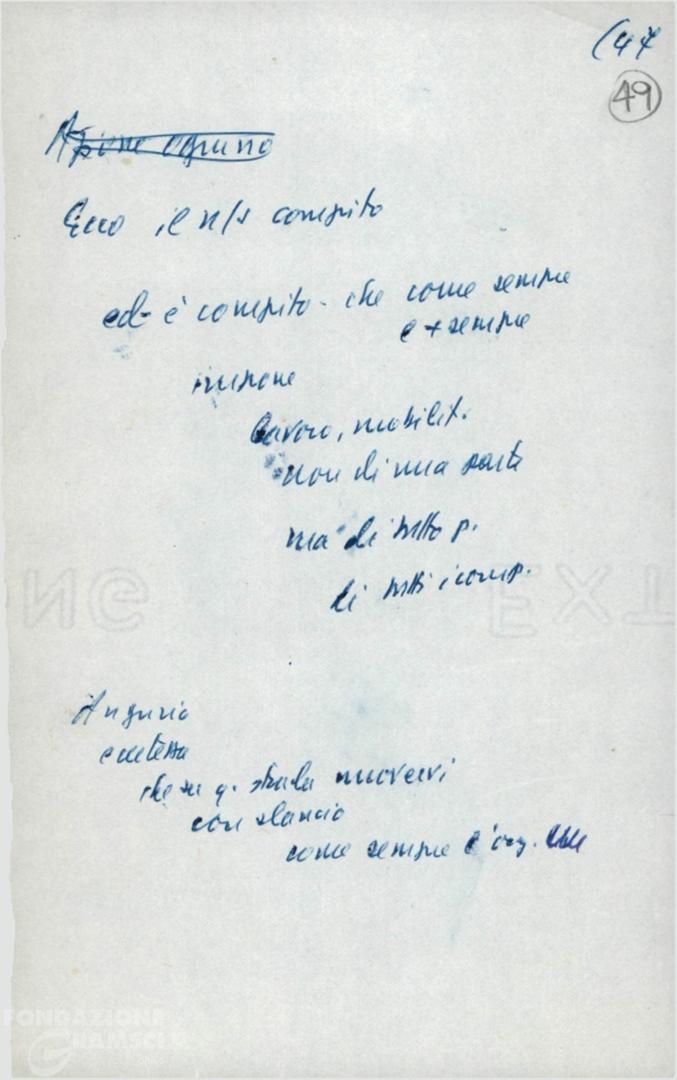 (47
49
Azione ognuno
Ecco il n/s compito
ed è compito - che come sempre
e + sempre
impone
lavoro, mobilit.
non di una parte
ma di tutto p.
di tutti i comp.
Augurio
e certezza
che su q. strada muoversi
con slancio
come sempre l'org.
FONDAZIONE
GRAMSCI